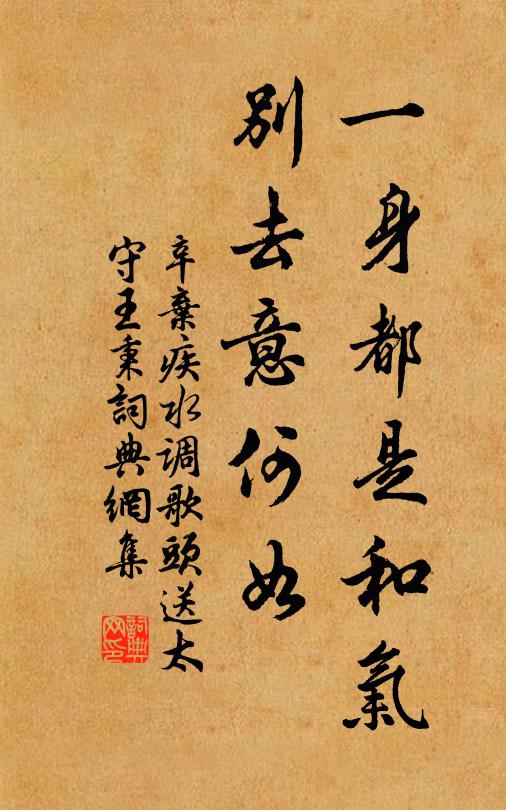 一身都是和氣
別去意何如
辛棄疾水调歌頭送太
守王秉詞典網集
詞典
网印